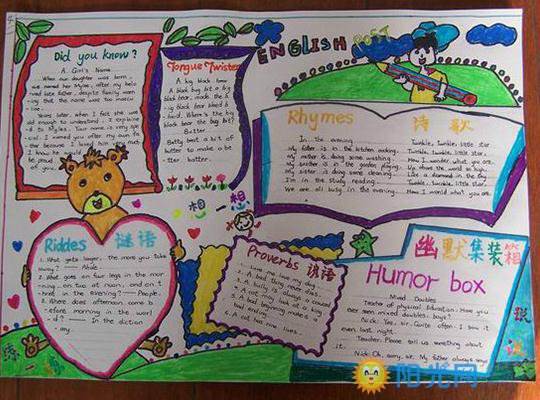 ENGLISH POST
Did you know?
A Girl's Name
When our daughter was born,
we named her Myles, after my belo
-ved late father, despite family warn
-ing that the name was too mascu
-line.
Years later, when I felt she was
old enough to understand I explaine
-d to Myles. Your name is very spe
-cial. I named you after my own fa
-ther because I loved him very much
I know he would be proud
of you.
Tongue Twister
A big black bear
A black bug bit a big
black bear, made the b
-ig black bear bleed b
-lood. Where's the big
black bear the bug bit?
Butter
Betty beat a bit of
butter to make a be
-tter batter.
Rhymes 诗歌
In the evening
My father is in the kitchen cooking.
My mother is doing some washing.
My brother is in the garden playing.
My sister is doing some cleaning.
I'm in the study reading.
We are all busy in the evening.
Twinkle, twinkle, little star
Twinkle, twinkle, little star,
How I wonder what you are.
Up above the world so high,
Like a diamond in the sky
Twinkle, twinkle, little star,
How I wonder what you are.
想 想
Riddes 谜语
1. What gets larger, the more you take
away? — Hole
2. What goes on four legs in the mor
-ning, on two at noon, and on t
-hree in the evening? — People.
3. Where does afternoon come b
-efore morning in the worl
-d? — In the diction
-ary
Proverbs 谚语
1. Love me love my dog.
2. A bad thing never dies.
3. A bully is always a coward
4. A cat may look at a king
5. A good beginning makes a
good ending.
6. A cat has nine lives.
幽默集装箱
Humor box
Mixed Doubles
Teacher of physical Education: Have you
ever seen mixed doubles, boys?
Nick: Yes, sir. Quite often. I saw it
even last night.
Teacher: Please tell us something about
it.
Nick: Oh, sorry, sir. My father always says
练一练
说
阳光网